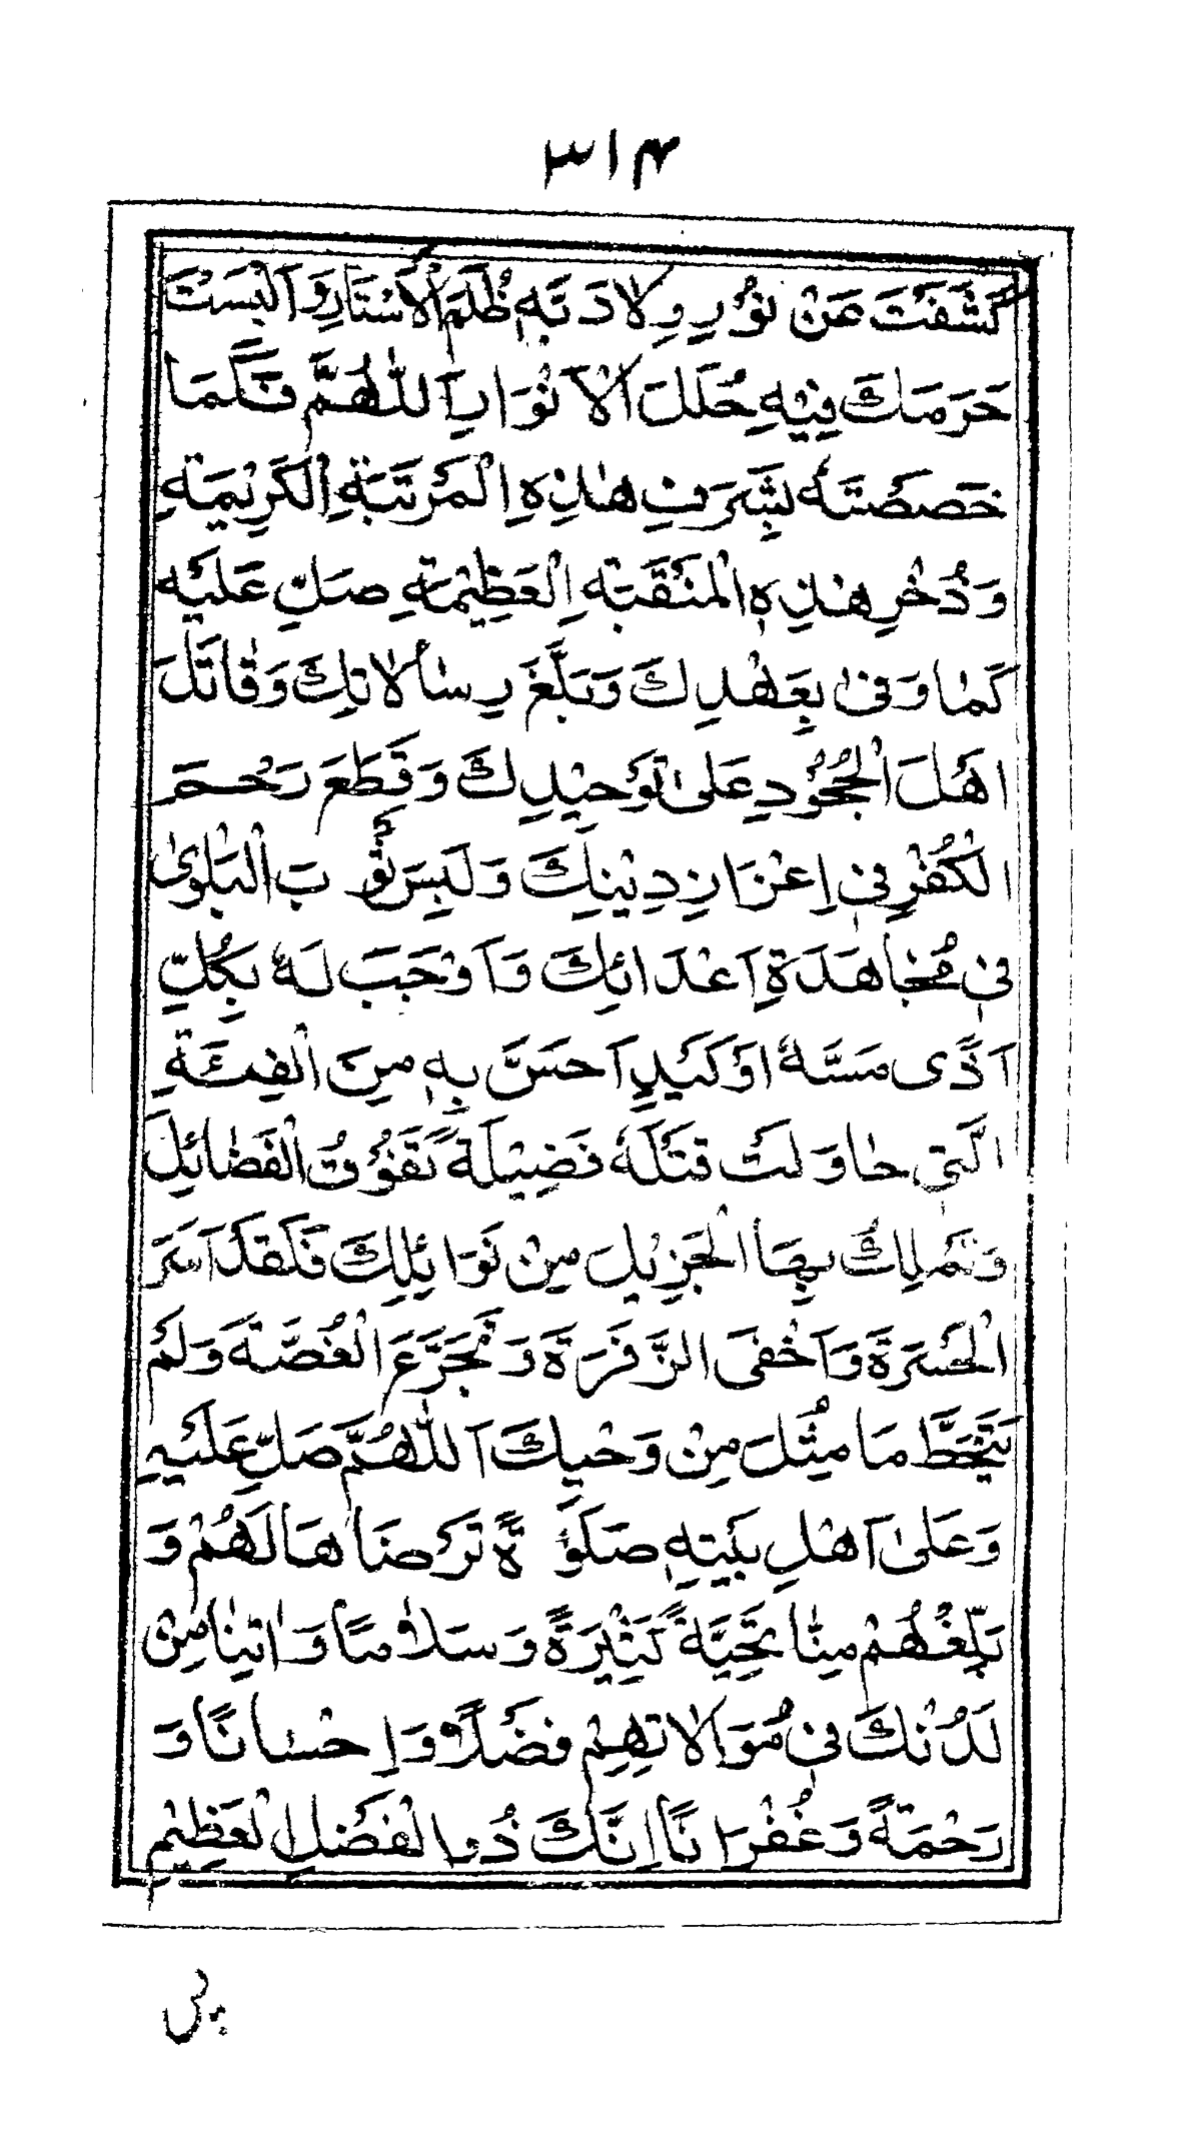 ٣١۴
كَشَفْتَ عَنْ نُوْرِ وِلَادَتِهٖ ظُلَمَ الْأَسْتَارِ وَاَلْبَسْتَ
حَرَمَكَ فِيْهِ حُلَلَ الْاَنْوَارِ اَللّٰهُمَّ فَكَمَا
خَصَصْتَهٗ بِشَرَفِ هٰذِهِ الْمَرْتَبَةِ الْكَرِيْمَةِ
وَذُخْرِ هٰذِهِ الْمَنْقَبَةِ الْعَظِيْمَةِ صَلِّ عَلَيْهِ
كَمٰا وَفٰى بِعَهْدِكَ وَبَلَّغَ رِسٰالَاتِكَ وَقٰاتَلَ
اَهْلَ الْجُحُوْدِ عَلىٰ تَوْحِيْدِكَ وَقَطَعَ رَحْمَ
الْكُفْرِ فِيْ اِعْزَازِ دِيْنِكَ وَلَبِسَ ثَوْبَ الْبَلْوىٰ
فِيْ مُجٰاهَدَةِ اَعْدَائِكَ وَاَوْجَبَ لَهٗ بِكُلِّ
اَذًى مَسَّهٗ اَوْ كَيْدٍ اَحَسَّ بِهٖ مِنَ الْفِئَةِ
الَّتِيْ حٰاوَلَتْ قَتْلَهٗ فَضِيْلَةً تَفُوْقُ الْفَضٰائِلَ
وَيَمْلِكُ بِهَا الْجَزِيْلَ مِنْ نَوَائِلِكَ فَلَقَدْ اَسَرَّ
الْحَسْرَةَ وَاَخْفَى الزَّفْرَةَ وَتَجَرَّعَ الْغُصَّةَ وَلَمْ
يَتَخَطَّ مَا مُثِّلَ مِنْ وَحْيِكَ اَللّٰهُمَّ صَلِّ عَلَيْهِ
وَعَلىٰ اَهْلِ بَيْتِهٖ صَلَوٰةً تَرْضَاهَا لَهُمْ وَ
بَلِّغْهُمْ مِنّٰا تَحِيَّةً كَثِيْرَةً وَسَلَامًا وَاٰتِنٰا مِنْ
لَدُنْكَ فِيْ مُوَالَاتِهِمْ فَضْلًا وَاِحْسٰانًا وَ
رَحْمَةً وَغُفْرَانًا اِنَّكَ ذُوا الْفَضْلِ الْعَظِيْمِ